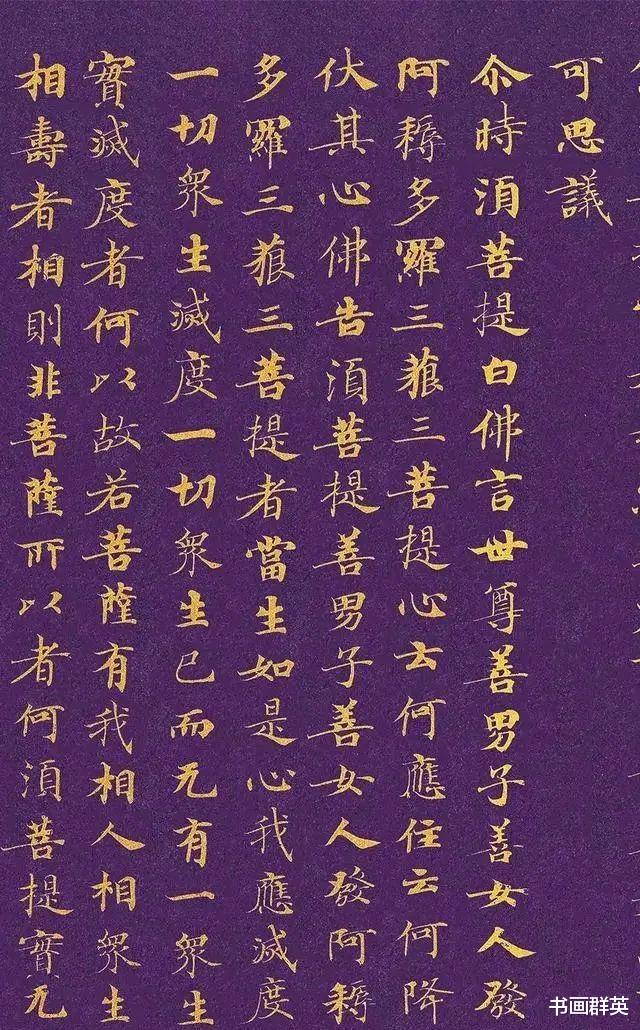 可思議
尒時湏菩提白佛言世尊善男子善女人發
阿耨多羅三藐三菩提心云何應住云何降
伏其心佛告湏菩提善男子善女人發阿耨
多羅三藐三菩提者當生如是心我應滅度
一切衆生滅度一切衆生已而无有一衆生
實滅度者何以故若菩薩有我相人相衆生
相壽者相則非菩薩所以者何湏菩提實无
书画群英